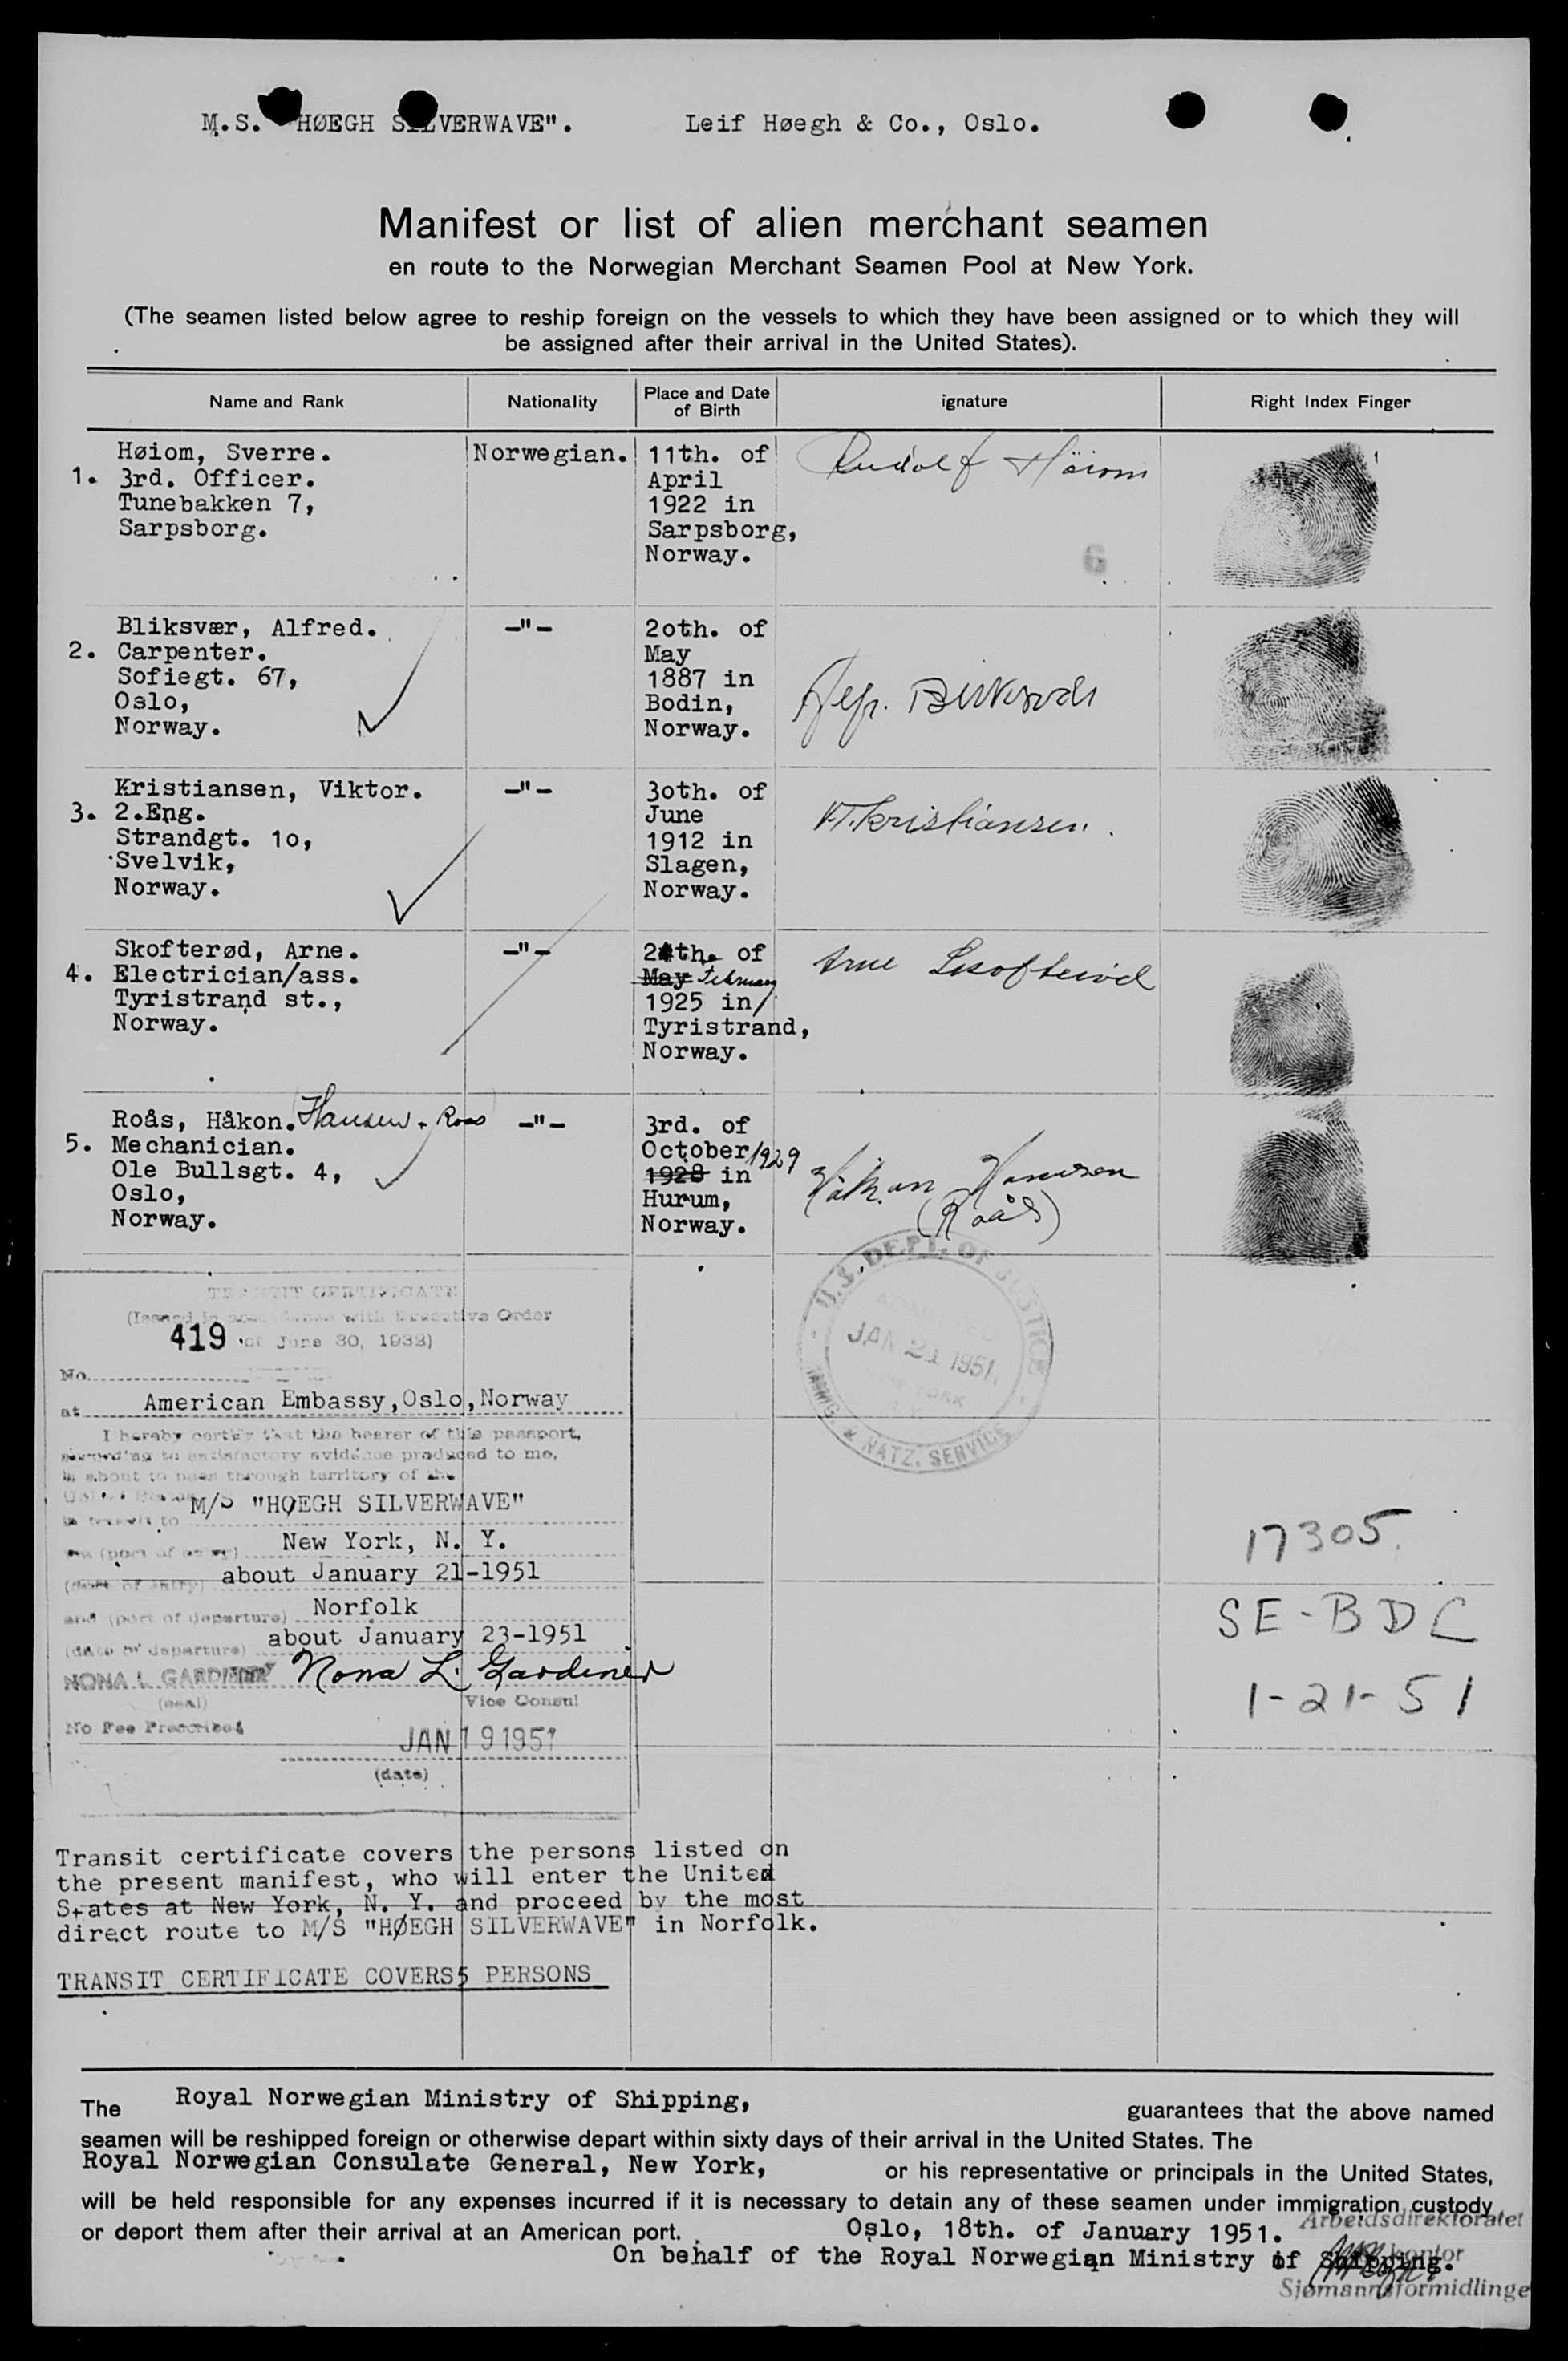 M.S. "HØEGH SILVERWAVE". Leif Høegh & Co., Oslo.
Manifest or list of alien merchant seamen
en route to the Norwegian Merchant Seamen Pool at New York.
(The seamen listed below agree to reship foreign on the vessels to which they have been assigned or to which they will
be assigned after their arrival in the United States).
Name and Rank Nationality Place and Date of Birth ignature Right Index Finger
1. Høiom, Sverre.
3rd. Officer.
Tunebakken 7,
Sarpsborg.
Norwegian.
11th. of
April
1922 in
Sarpsborg,
Norway.
Rudolf Höiom
6
2. Bliksvær, Alfred.
Carpenter.
Sofiegt. 67,
Oslo,
Norway.
-"-
2oth. of
May
1887 in
Bodin,
Norway.
3. Kristiansen, Viktor.
2.Eng.
Strandgt. 1o,
Svelvik,
Norway.
-"-
3oth. of
June
1912 in
Slagen,
Norway.
V.T. Kristiansen.
4. Skofterød, Arne.
Electrician/ass.
Tyristrand st.,
Norway.
-"-
24th. of
May February
1925 in
Tyristrand,
Norway.
Arne Skofterød
5. Roås, Håkon. Hansen - Roås
Mechanician.
Ole Bullsgt. 4,
Oslo,
Norway.
-"-
3rd. of
October 1929
1928 in
Hurum,
Norway.
Håkon Hansen
(Roås)
U.S. DEPT. OF JUSTICE
ADMITTED
JAN 21 1951
NEW YORK
IMMIG. & NATZ. SERVICE
TRANSIT CERTIFICATE
(Issued in accordance with Executive Order
419 of June 30, 1932)
No.
at American Embassy, Oslo, Norway
I hereby certify that the bearer of this passport,
according to satisfactory evidence produced to me,
is about to pass through territory of the
United States
in transit to M/S "HØEGH SILVERWAVE"
via (port of entry) New York, N. Y.
(date of entry) about January 21-1951
and (port of departure) Norfolk
(date of departure) about January 23-1951
NONA L. GARDINER Nona L. Gardiner
(seal) Vice Consul
No Fee Prescribed
JAN 19 1951
(date)
17305
SE-BDC
1-21-51
Transit certificate covers the persons listed on
the present manifest, who will enter the United
States at New York, N. Y. and proceed by the most
direct route to M/S "HØEGH SILVERWAVE" in Norfolk.
TRANSIT CERTIFICATE COVERS 5 PERSONS
The Royal Norwegian Ministry of Shipping, guarantees that the above named
seamen will be reshipped foreign or otherwise depart within sixty days of their arrival in the United States. The
Royal Norwegian Consulate General, New York, or his representative or principals in the United States,
will be held responsible for any expenses incurred if it is necessary to detain any of these seamen under immigration custody
or deport them after their arrival at an American port.
Oslo, 18th. of January 1951.
Arbeidsdirektoratet
On behalf of the Royal Norwegian Ministry of Shipping.
kontor
Sjømannsformidlinge